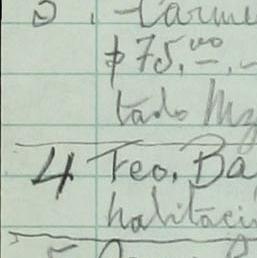 3. Carme
$75.00.-
tado Mz
4 Teo. Ba
habitaci
5